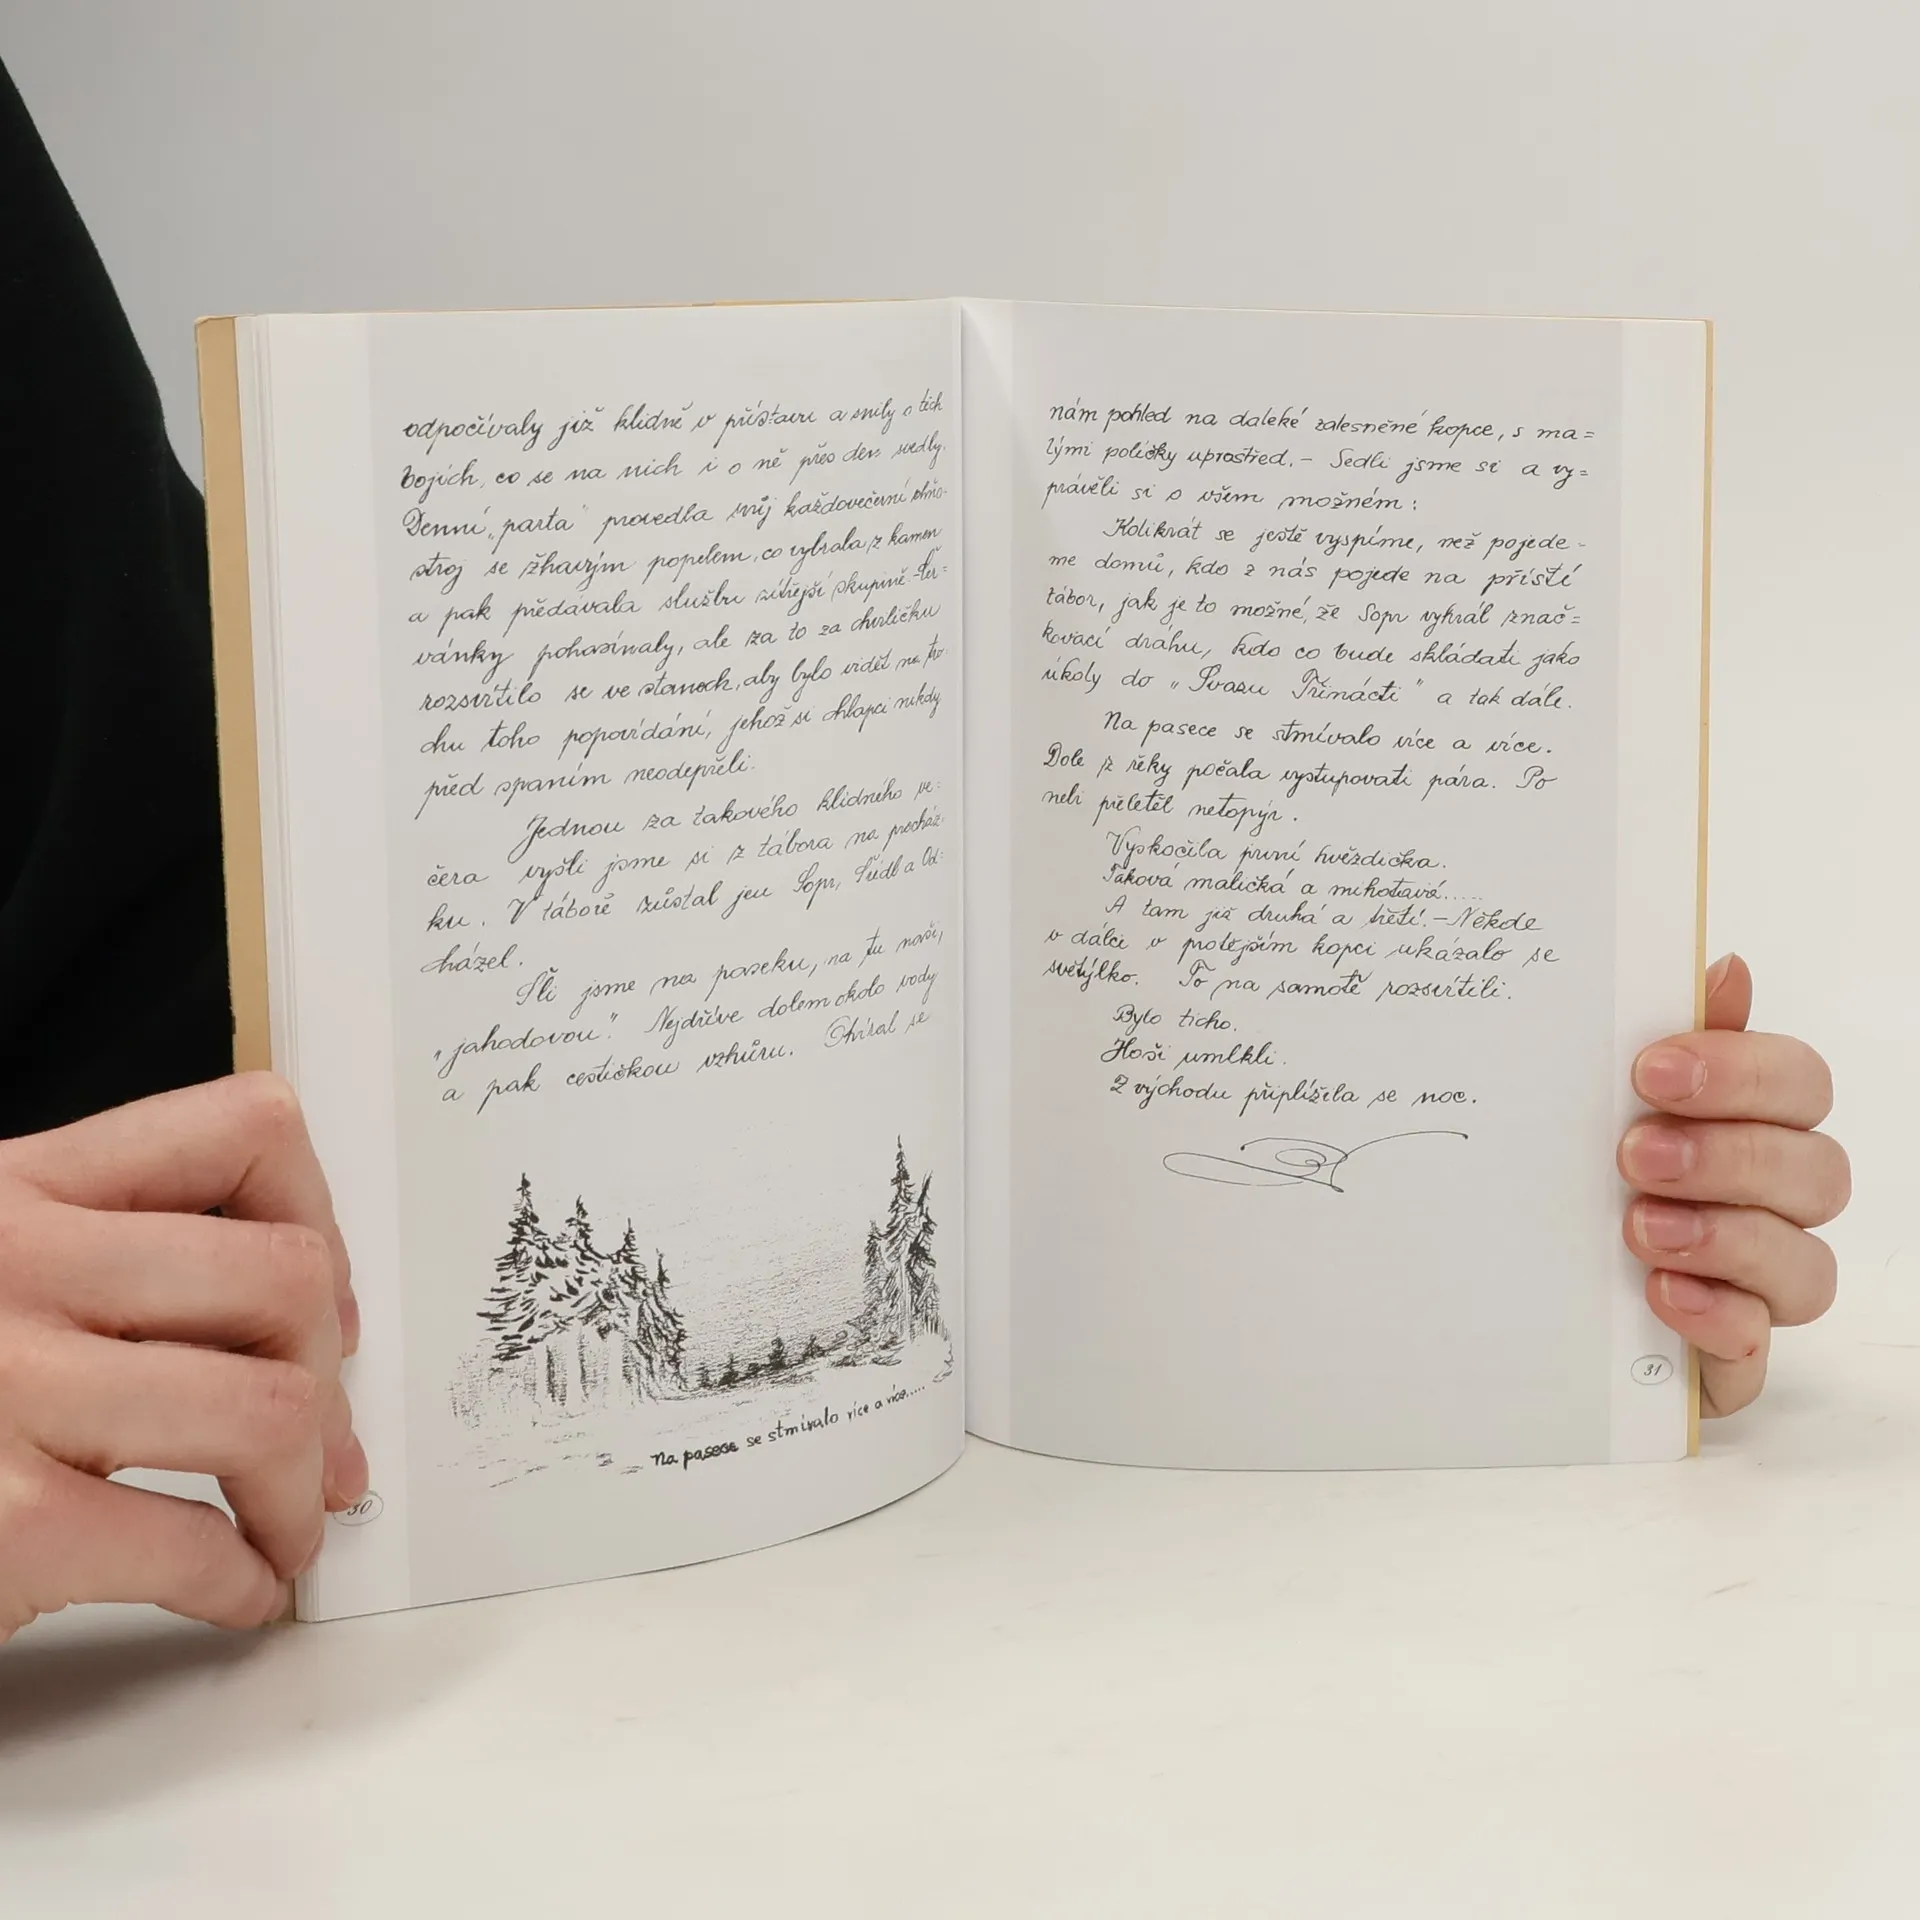 odpočívaly již klidně v přístavu a snily o těch
bojích, co se na nich i o ně přes den svedly.
Denní „parta" provedla svůj každovečerní ohňo-
stroj se žhavým popelem, co vybrala z kamen
a pak předávala službu zítřejší skupině. - Čer=
vánky pohasínaly, ale za to za chviličku
rozsvítilo se ve stanech, aby bylo vidět na tro-
chu toho popovídání, jehož si chlapci nikdy
před spaním neodepřeli.
Jednou za takového klidného ve=
čera vyšli jsme si z tábora na procház-
ku. V táboře zůstal jen Sopr, Šidl a Od=
cházel.
Šli jsme na paseku, na tu naši,
„jahodovou". Nejdříve dolem okolo vody
a pak cestičkou vzhůru. Otvíral se
Na pasece se stmívalo více a více.....
30
nám pohled na daleké zalesněné kopce, s ma=
lými políčky uprostřed. - Sedli jsme si a vy=
právěli si o všem možném:
Kolikrát se ještě vyspíme, než pojede-
me domů, kdo z nás pojede na příští
tábor, jak je to možné, že Sopr vyhrál znač=
kovací dráhu, kdo co bude skládati jako
úkoly do „Svazu Třinácti" a tak dále.
Na pasece se stmívalo více a více.
Dole z řeky počala vystupovati pára. Po
nebi přeletěl netopýr.
Vyskočila první hvězdička.
Taková maličká a mihotavá.....
A tam již druhá a třetí. - Někde
v dálci v protějším kopci ukázalo se
světýlko. To na samotě rozsvítili.
Bylo ticho.
Hoši umlkli.
Z východu připlížila se noc.
31